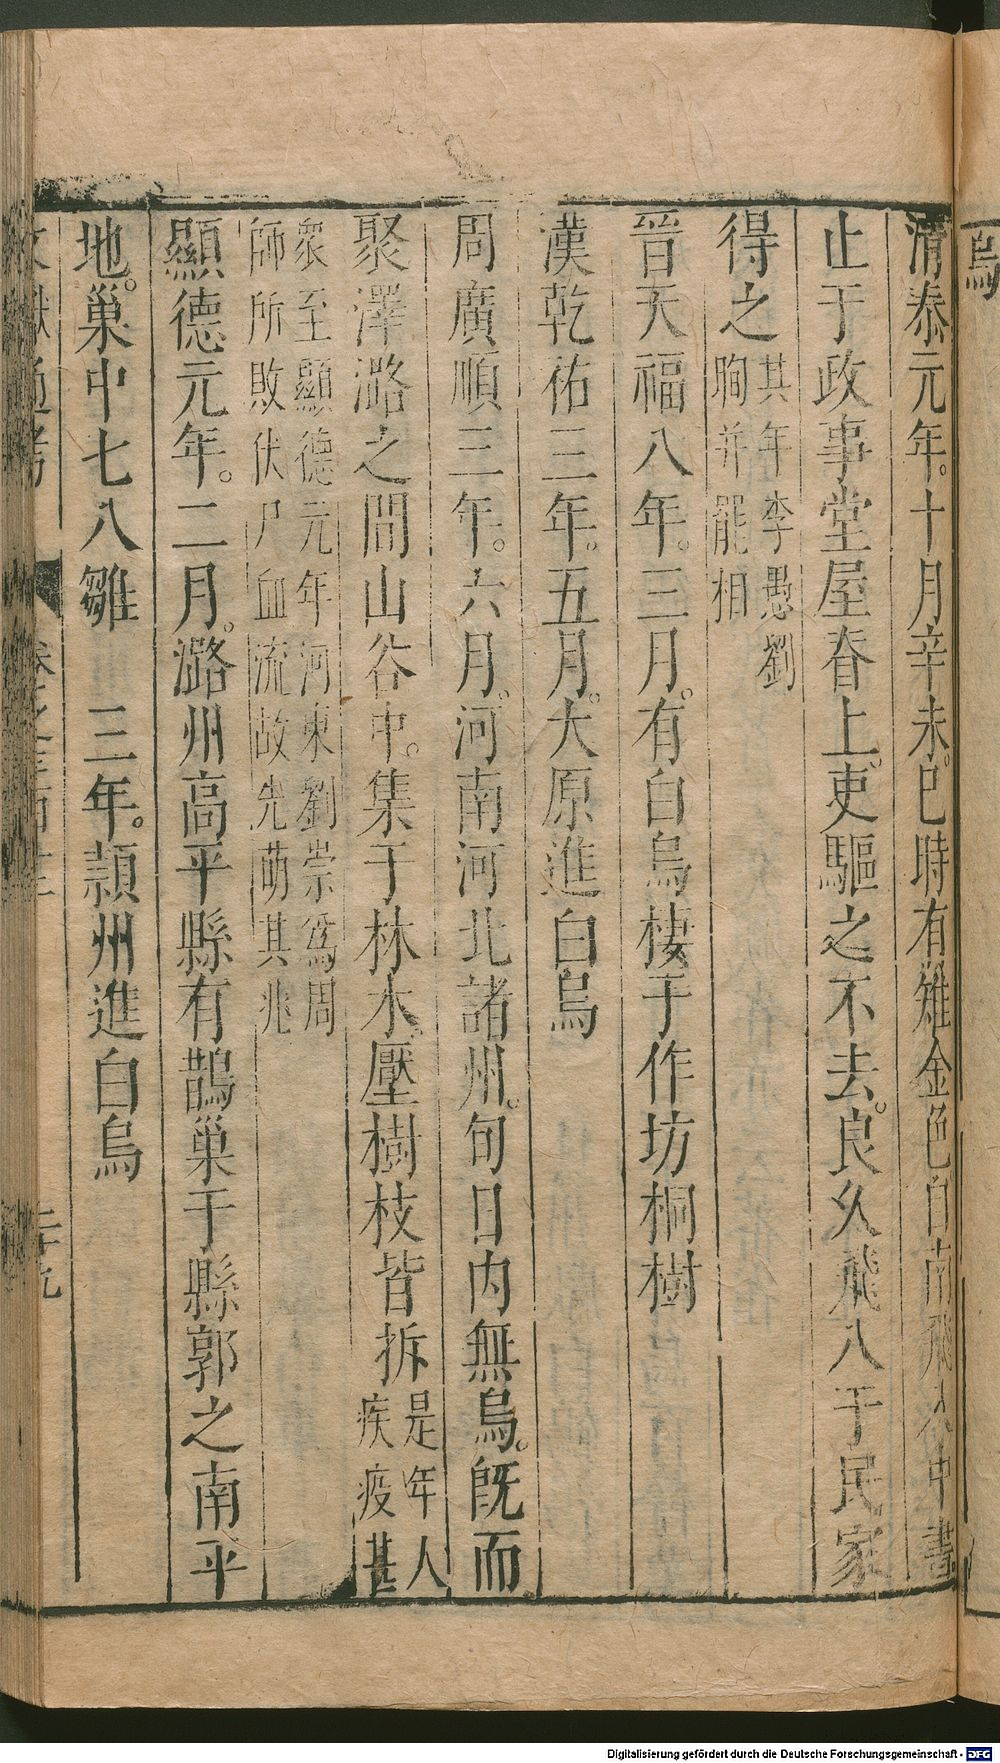 清泰元年。十月辛未。巳時有雉金色自南飛入中書
止于政事堂屋脊上。吏驅之不去。良久飛入于民家
得之其年李愚劉昫并罷相
晉天福八年。三月。有白烏棲于作坊桐樹
漢乾祐三年。五月。大原進白烏
周廣順三年。六月。河南河北諸州。旬日内無烏。旣而
聚澤潞之間山谷中。集于林木壓樹枝皆拆是年人疾疫甚
衆至顯德元年河東劉崇爲周師所敗伏尸血流故先萌其兆
顯德元年。二月。潞州高平縣有鵲巢于縣郭之南平
地。巢中七八雛　三年。潁州進白烏
文獻通考
二十九
烏
Digitalisierung gefördert durch die Deutsche Forschungsgemeinschaft - DFG